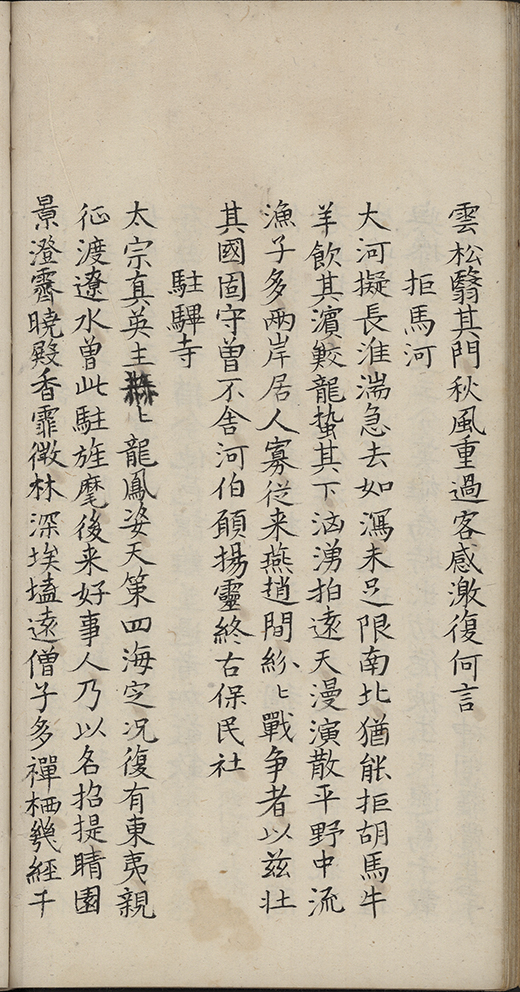 雲松翳其門秋風重過客感激復何言
拒馬河
大河擬長淮湍急去如瀉未足限南北猶能拒胡馬牛
羊飲其濵鮫龍蟄其下洶湧拍遠天漫演散平野中流
漁子多兩岸居人寡従来燕趙間紛〻戰争者以兹壮
其國固守曽不舍河伯願揚靈終古保民社
駐驆寺
太宗真英主〻龍鳳姿天策四海定况復有東夷親
征渡遼水曽此駐旌麾後来好事人乃以名招提晴園
景澄霽曉殿香霏微林深埃壒遠僧子多禪栖幾經千